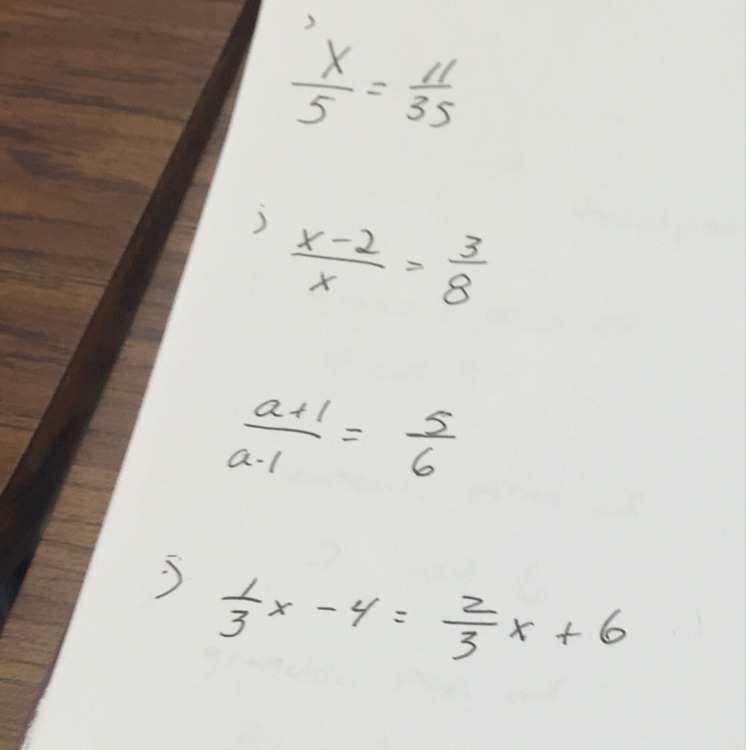 ) x/5 = 11/35
) x-2/x = 3/8
a+1/a-1 = 5/6
) 1/3 x - 4 = 2/3 x + 6